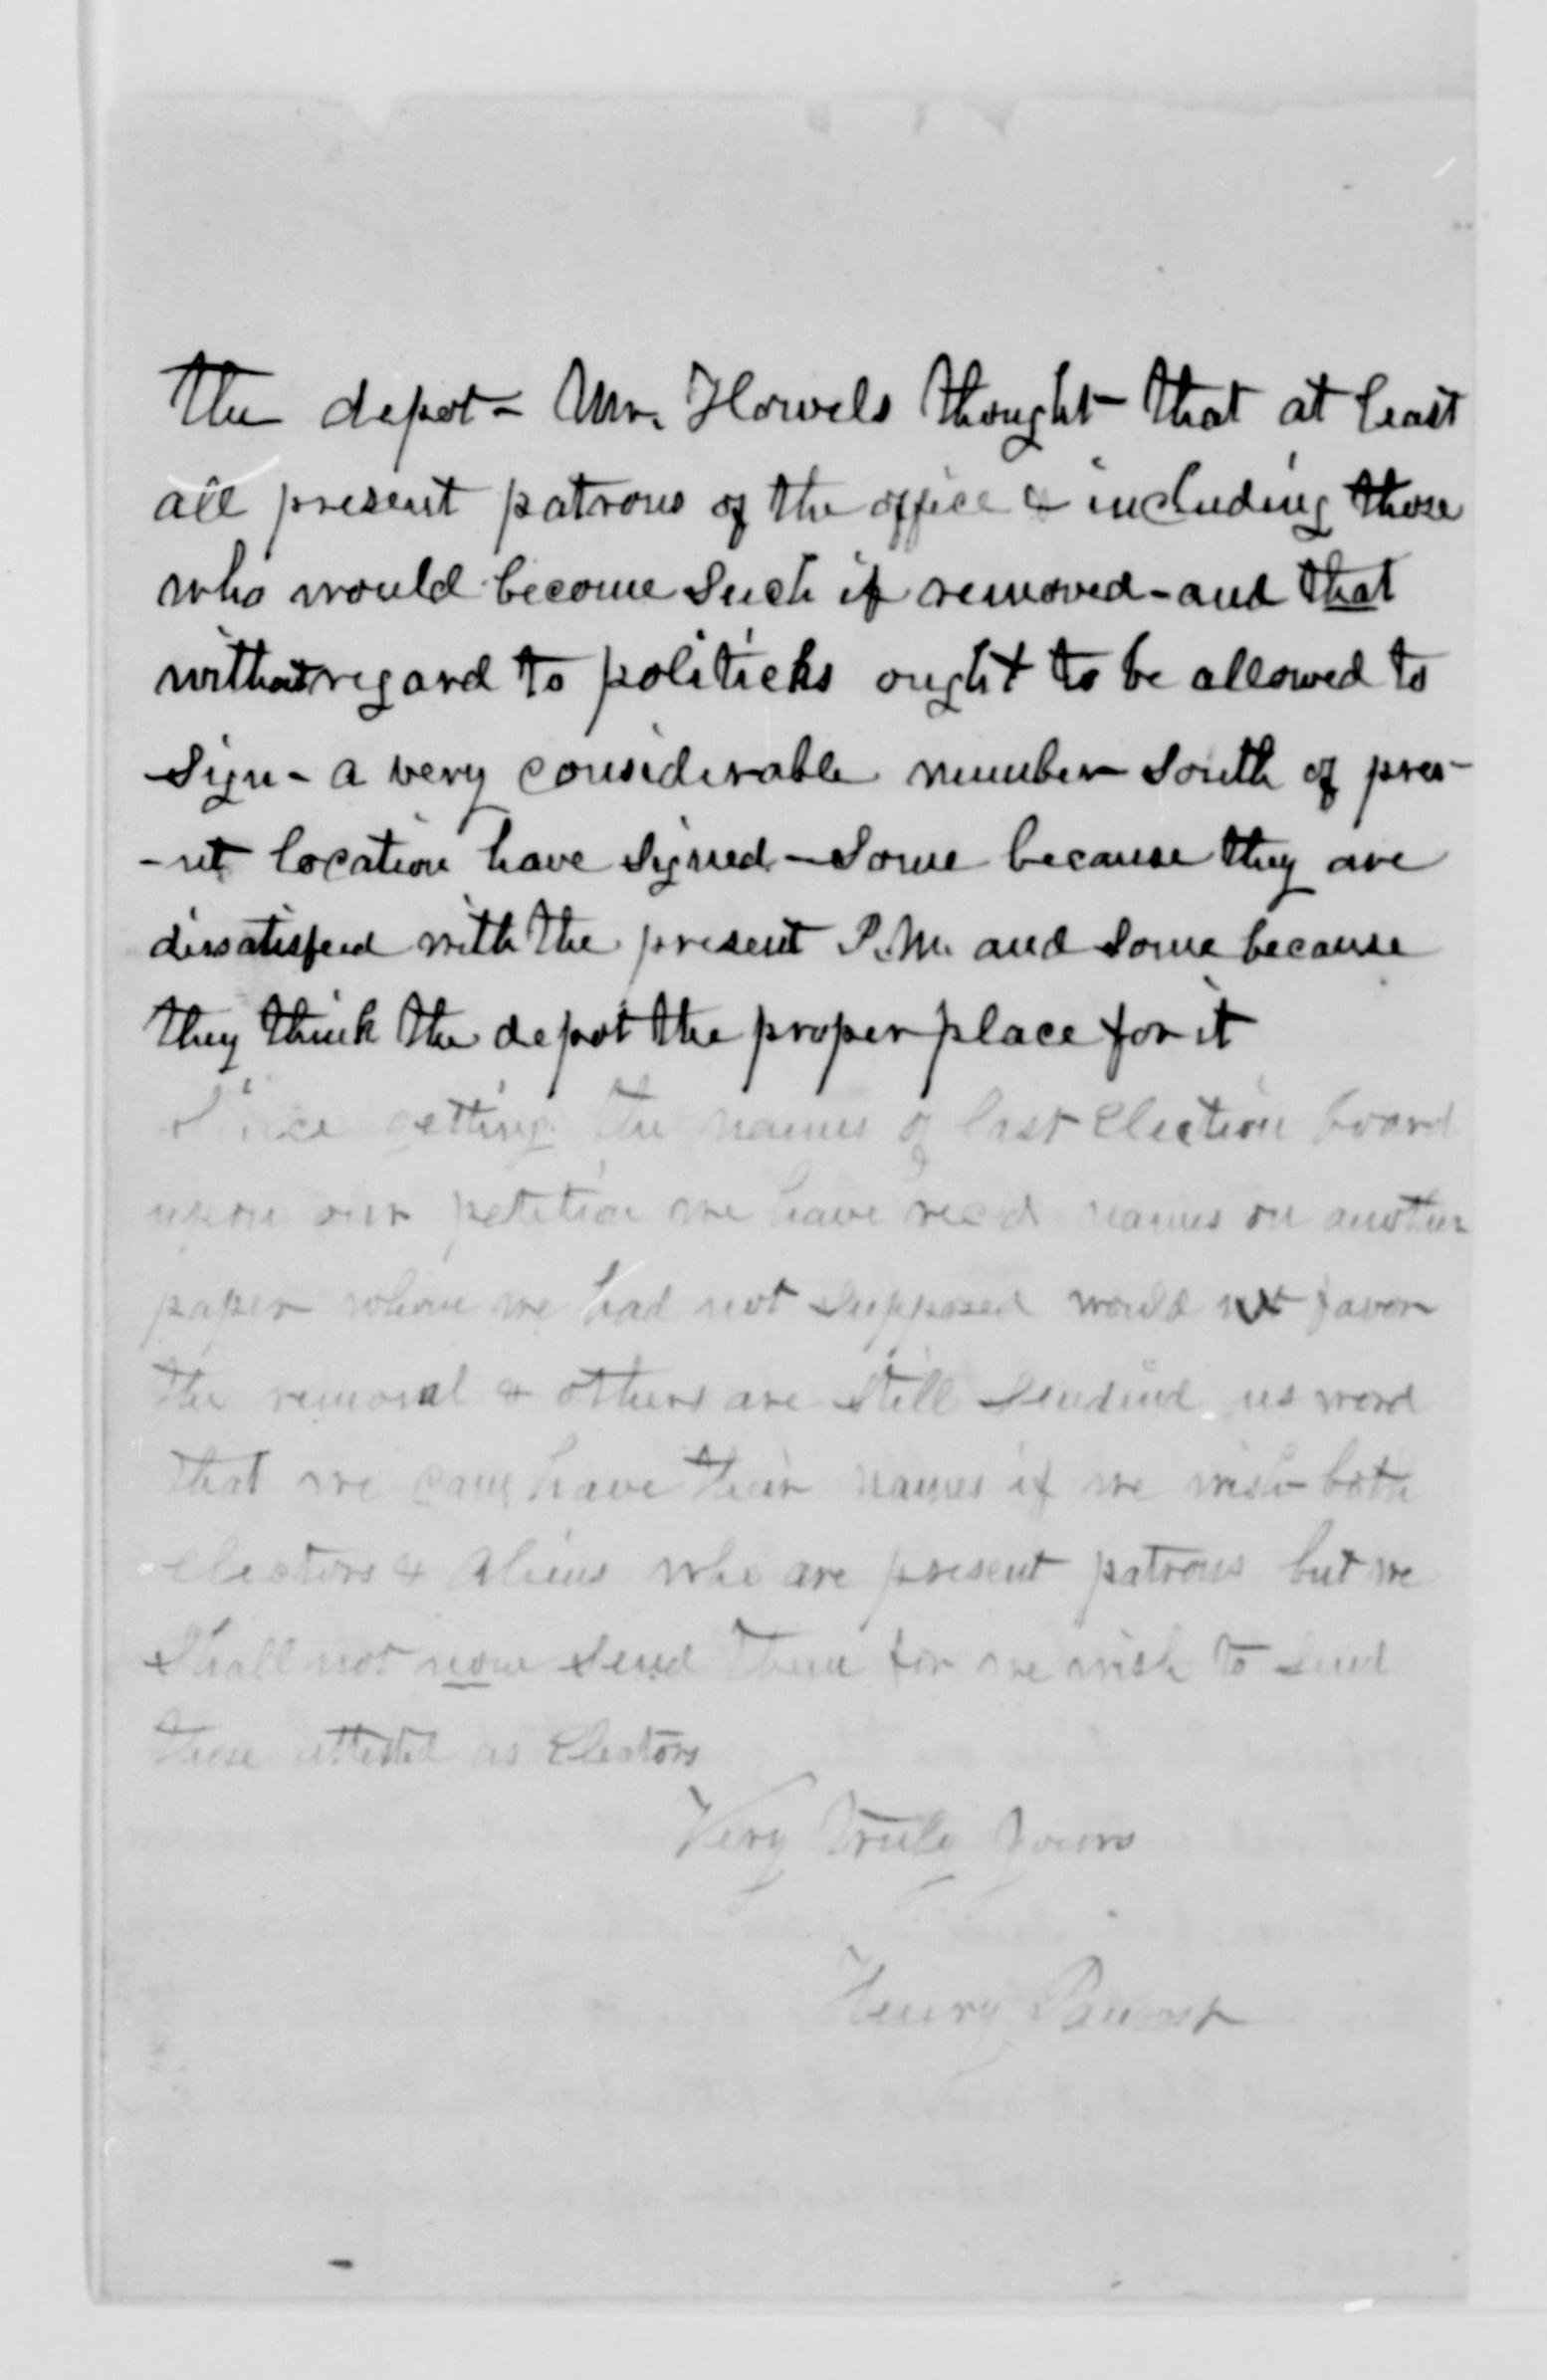 the depot - Mr. Howels thought - that at least
all present patrons of the office & including those
who would become such if removed - and that
without regard to politicks ought to be allowed to
sign - a very considerable number south of pres-
-nt location have signed - some because they are
dissatisfied with the present P.M. and some because
they think the depot the proper place for it
Since getting the names of last Election board
upon our petition we have rec'd names on another
paper whom we had not supposed would not favor
the removal & others are still sendind us word
that we can have their names if we wish - both
electors & aliens who are present patrons but we
shall not now send them for we wish to send
those attested as Electors
Very Truly Yours
Henry